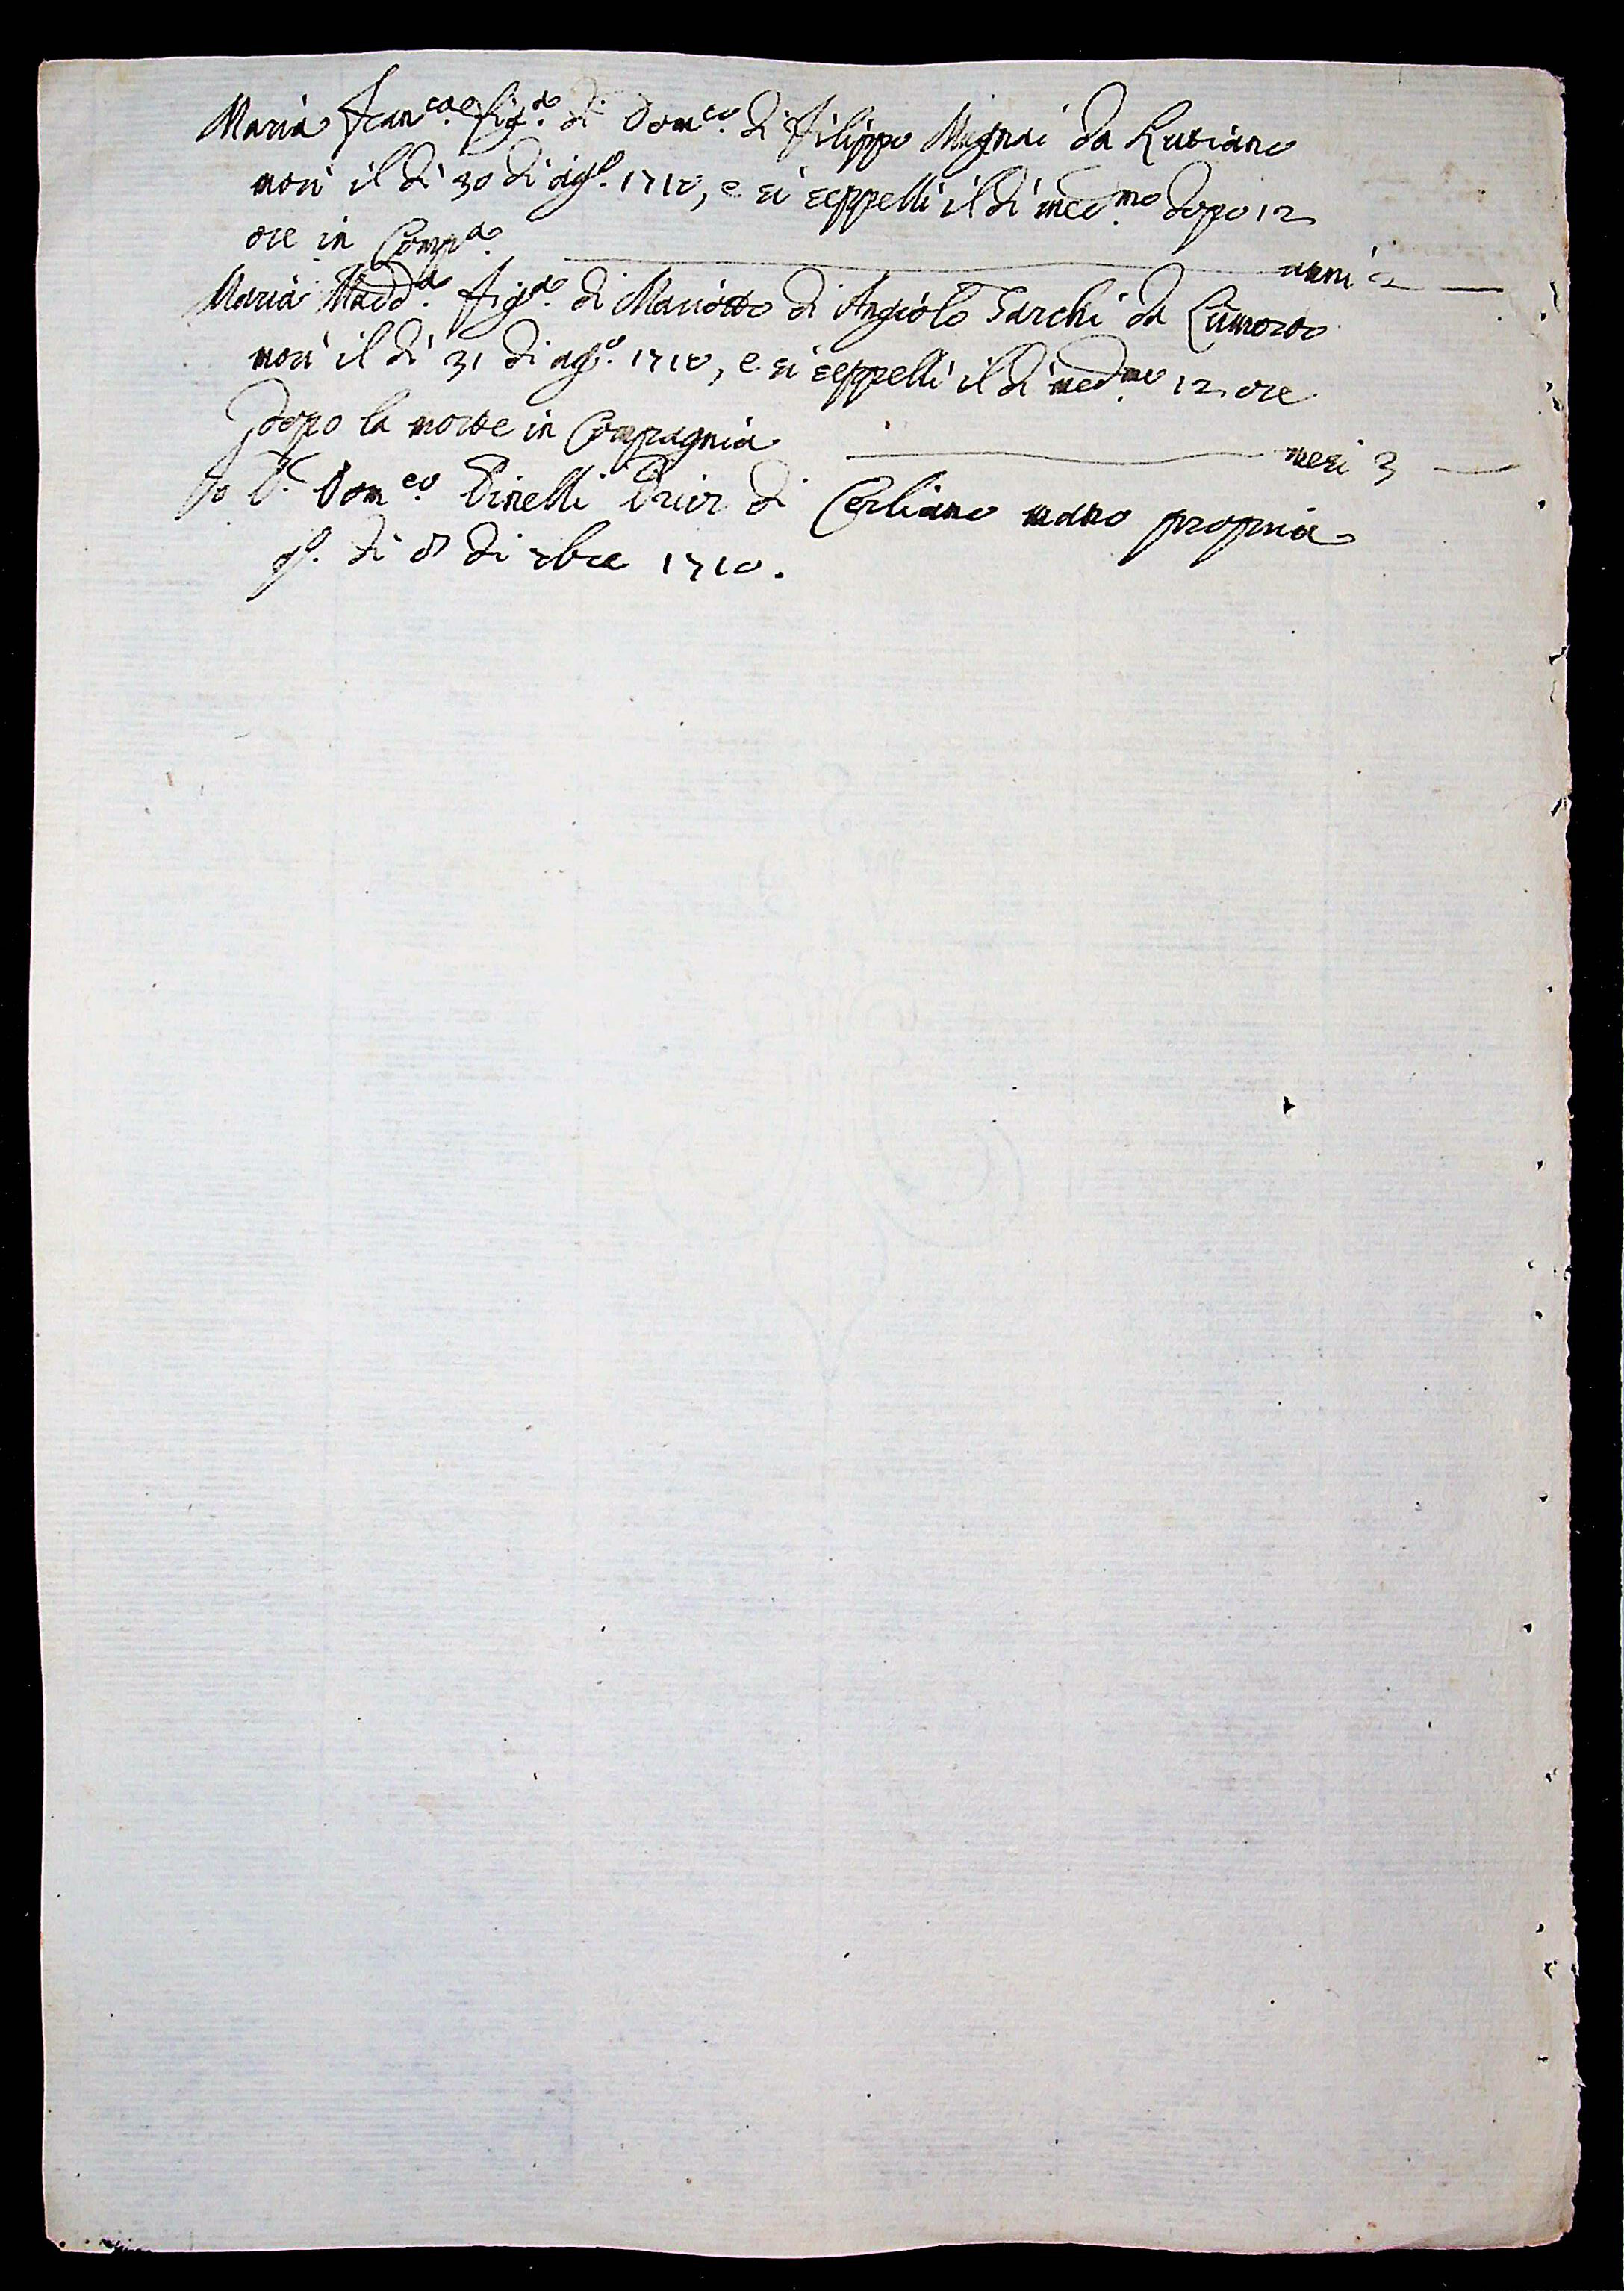 Maria Fran.ca fig.a di Dom.co di Filippo Magnai da Lutiano
morì il dì 30 di ag.o 1710, e si seppellì il dì med.mo dopo 12
ore in Comp.a anni 2
Maria Madd.a fig.a di Mariotto di Angiolo Tarchi da
morì il dì 31 di ag.o 1710, e si seppellì il dì med.mo 12 ore
dopo la morte in Compagnia mesi 3
Io P. Dom.co Pinelli Prior di Corliano mano propria
q.o dì 8 di 7bre 1710.